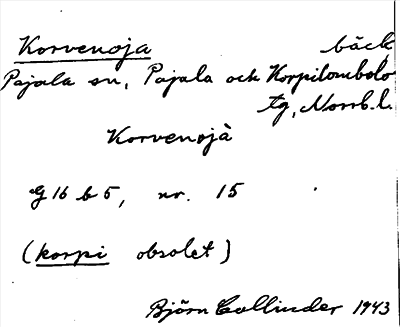 Korvenoja bäck
Pajala sn, Pajala och Korpilombolo
tg, Norrb. l.
Korvenojà
G 16 b 5, nr. 15
(korpi obsolet)
Björn Collinder 1943